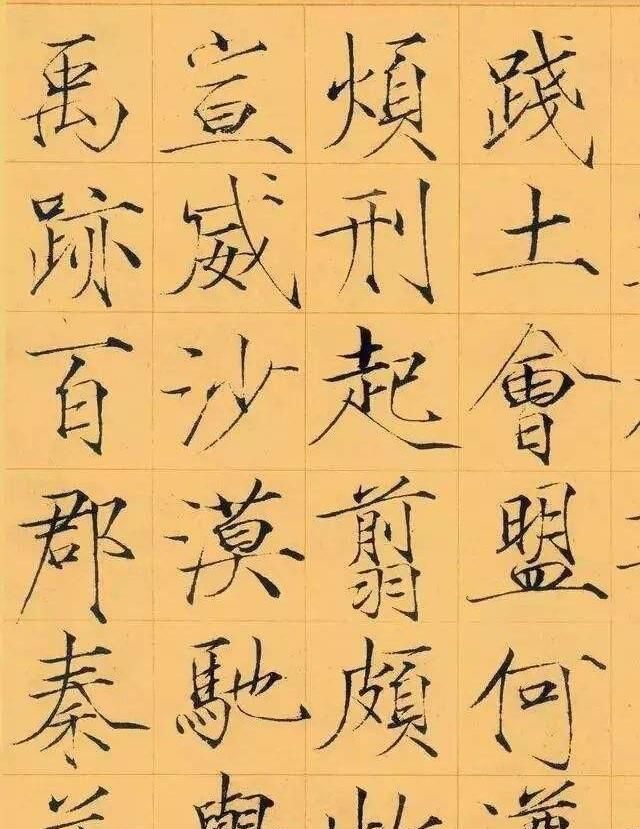 踐土會盟何
煩刑起翦頗
宣威沙漠馳
禹跡百郡秦